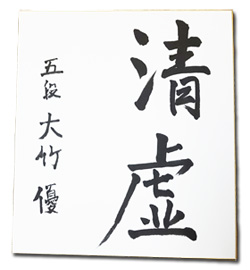 清虚
五段 大竹 優